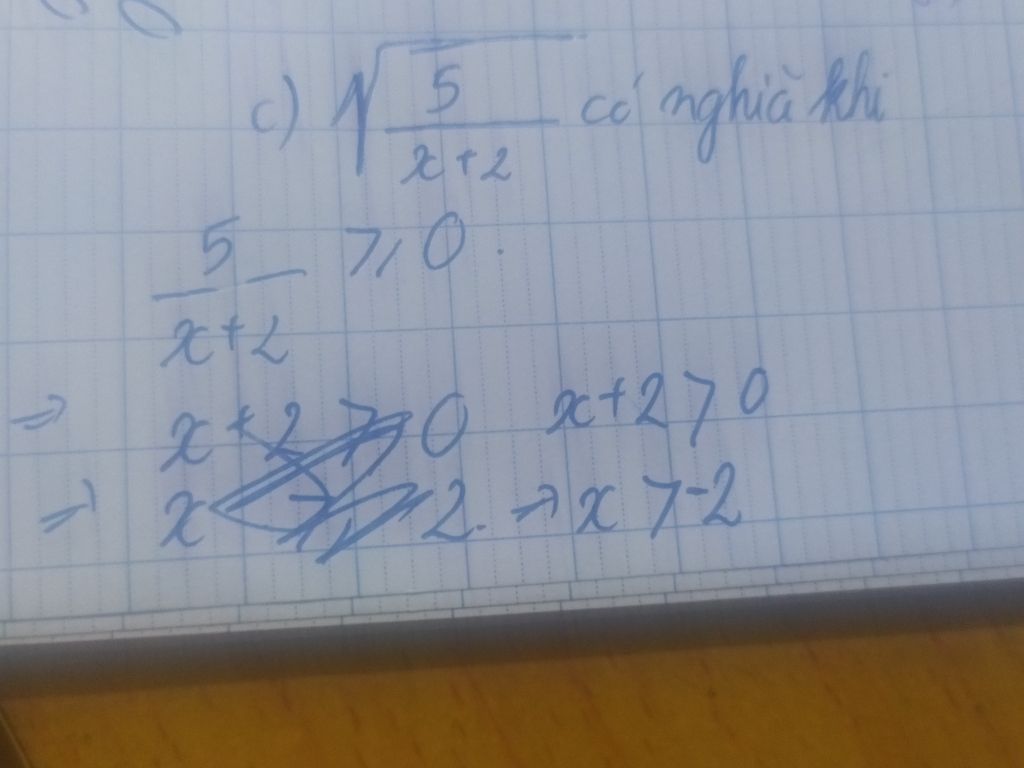 c) √(5/(x+2)) có nghiã khi
5/(x+2) ⩾ 0.
⇒ x+2 ⩾ 0 x+2 > 0
⇒ x ⩾ 2. → x > -2